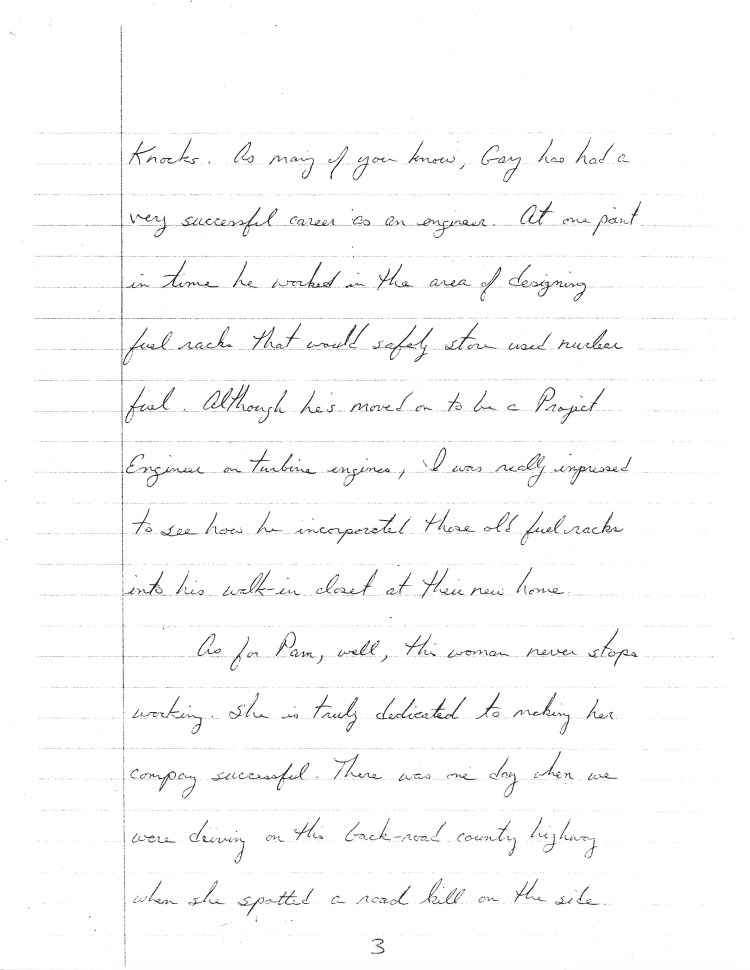 Knocks. As many of you know, Gary has had a
very successful career as an engineer. At one point
in time he worked in the area of designing
fuel racks that would safely store used nuclear
fuel. Although he's moved on to be a Project
Engineer on turbine engines, I was really impressed
to see how he incorporated those old fuel racks
into his walk-in closet at their new home.
As for Pam, well, this woman never stops
working. She is truly dedicated to making her
company successful. There was one day when we
were driving on this back-road county highway
when she spotted a road kill on the side.
3